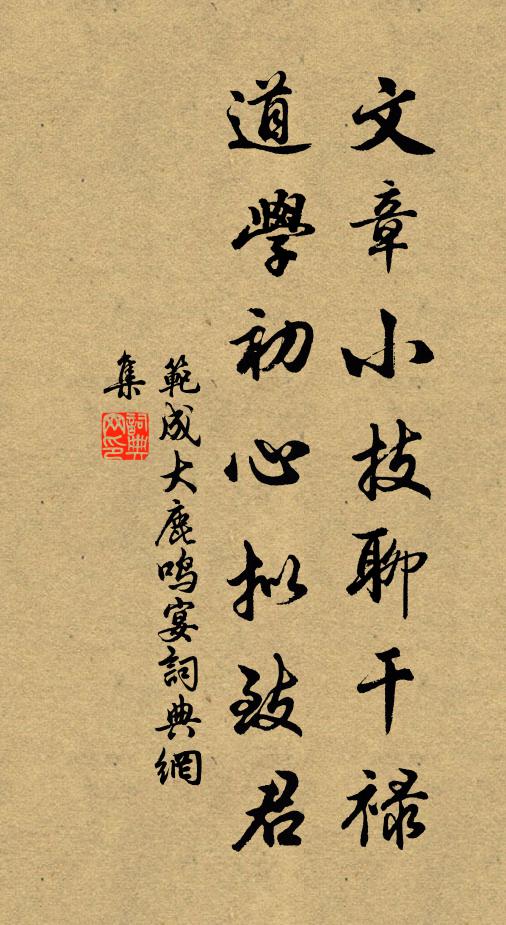 文章小技聊干禄
道學初心拟致君
範成大鹿鸣宴詞典網
集
詞典网印